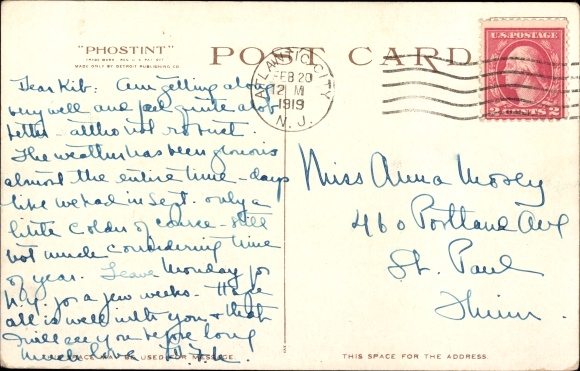 "PHOSTINT"
TRADE MARK REG. U.S. PAT. OFF.
MADE ONLY BY DETROIT PUBLISHING CO.
POST CARD
ATLANTIC CITY
FEB 20
12 M
1919
N. J.
U.S. POSTAGE
2 CENTS 2
Dear Kit: Am getting along
very well and feel quite a lot
better - altho not robust.
The weather has been glorious
almost the entire time - days
like we had in Sept. only a
little colder of course - still
not much considering time
of year. Leave Monday for
N.Y. for a few weeks. Hope
all is well with you & that
I will see you before long
Much love
MAY BE USED FOR MESSAGE.
Miss Anna Mosey
460 Portland Ave
St. Paul
Minn.
THIS SPACE FOR THE ADDRESS.